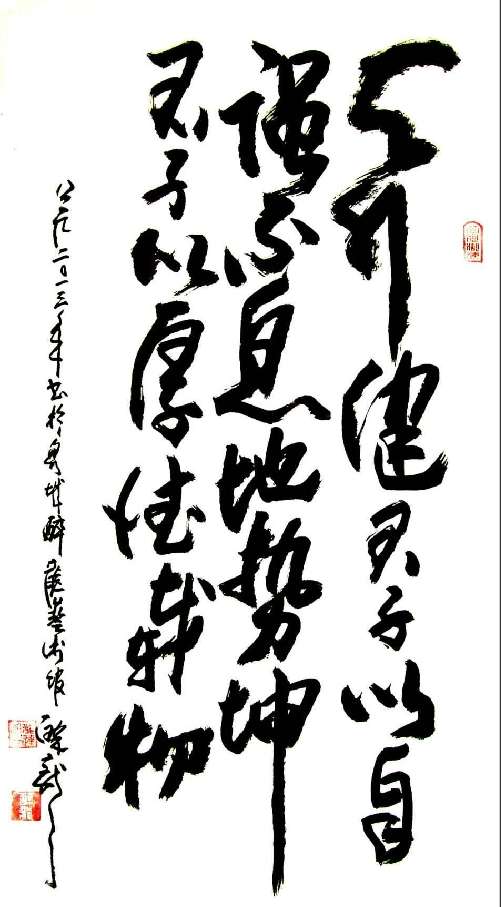 天行健君子以自
强不息地势坤
君子以厚德载物
公元二〇一三年书於泉城醉